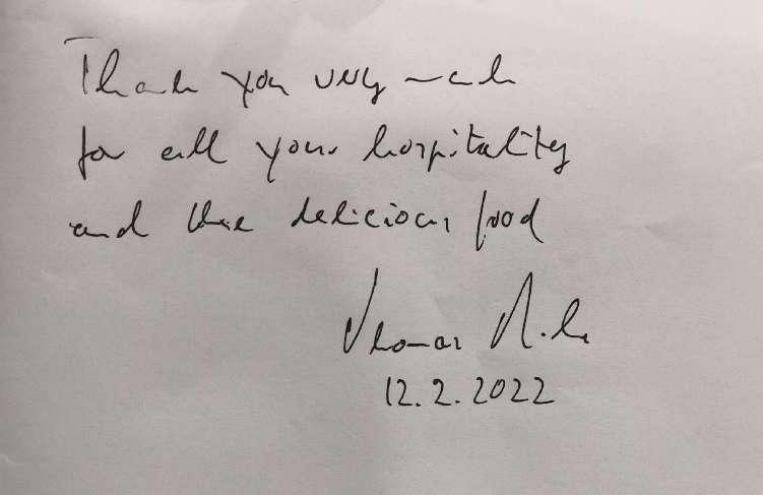 Thank you very much
for all your hospitality
and the delicious food
Thomas
12.2.2022